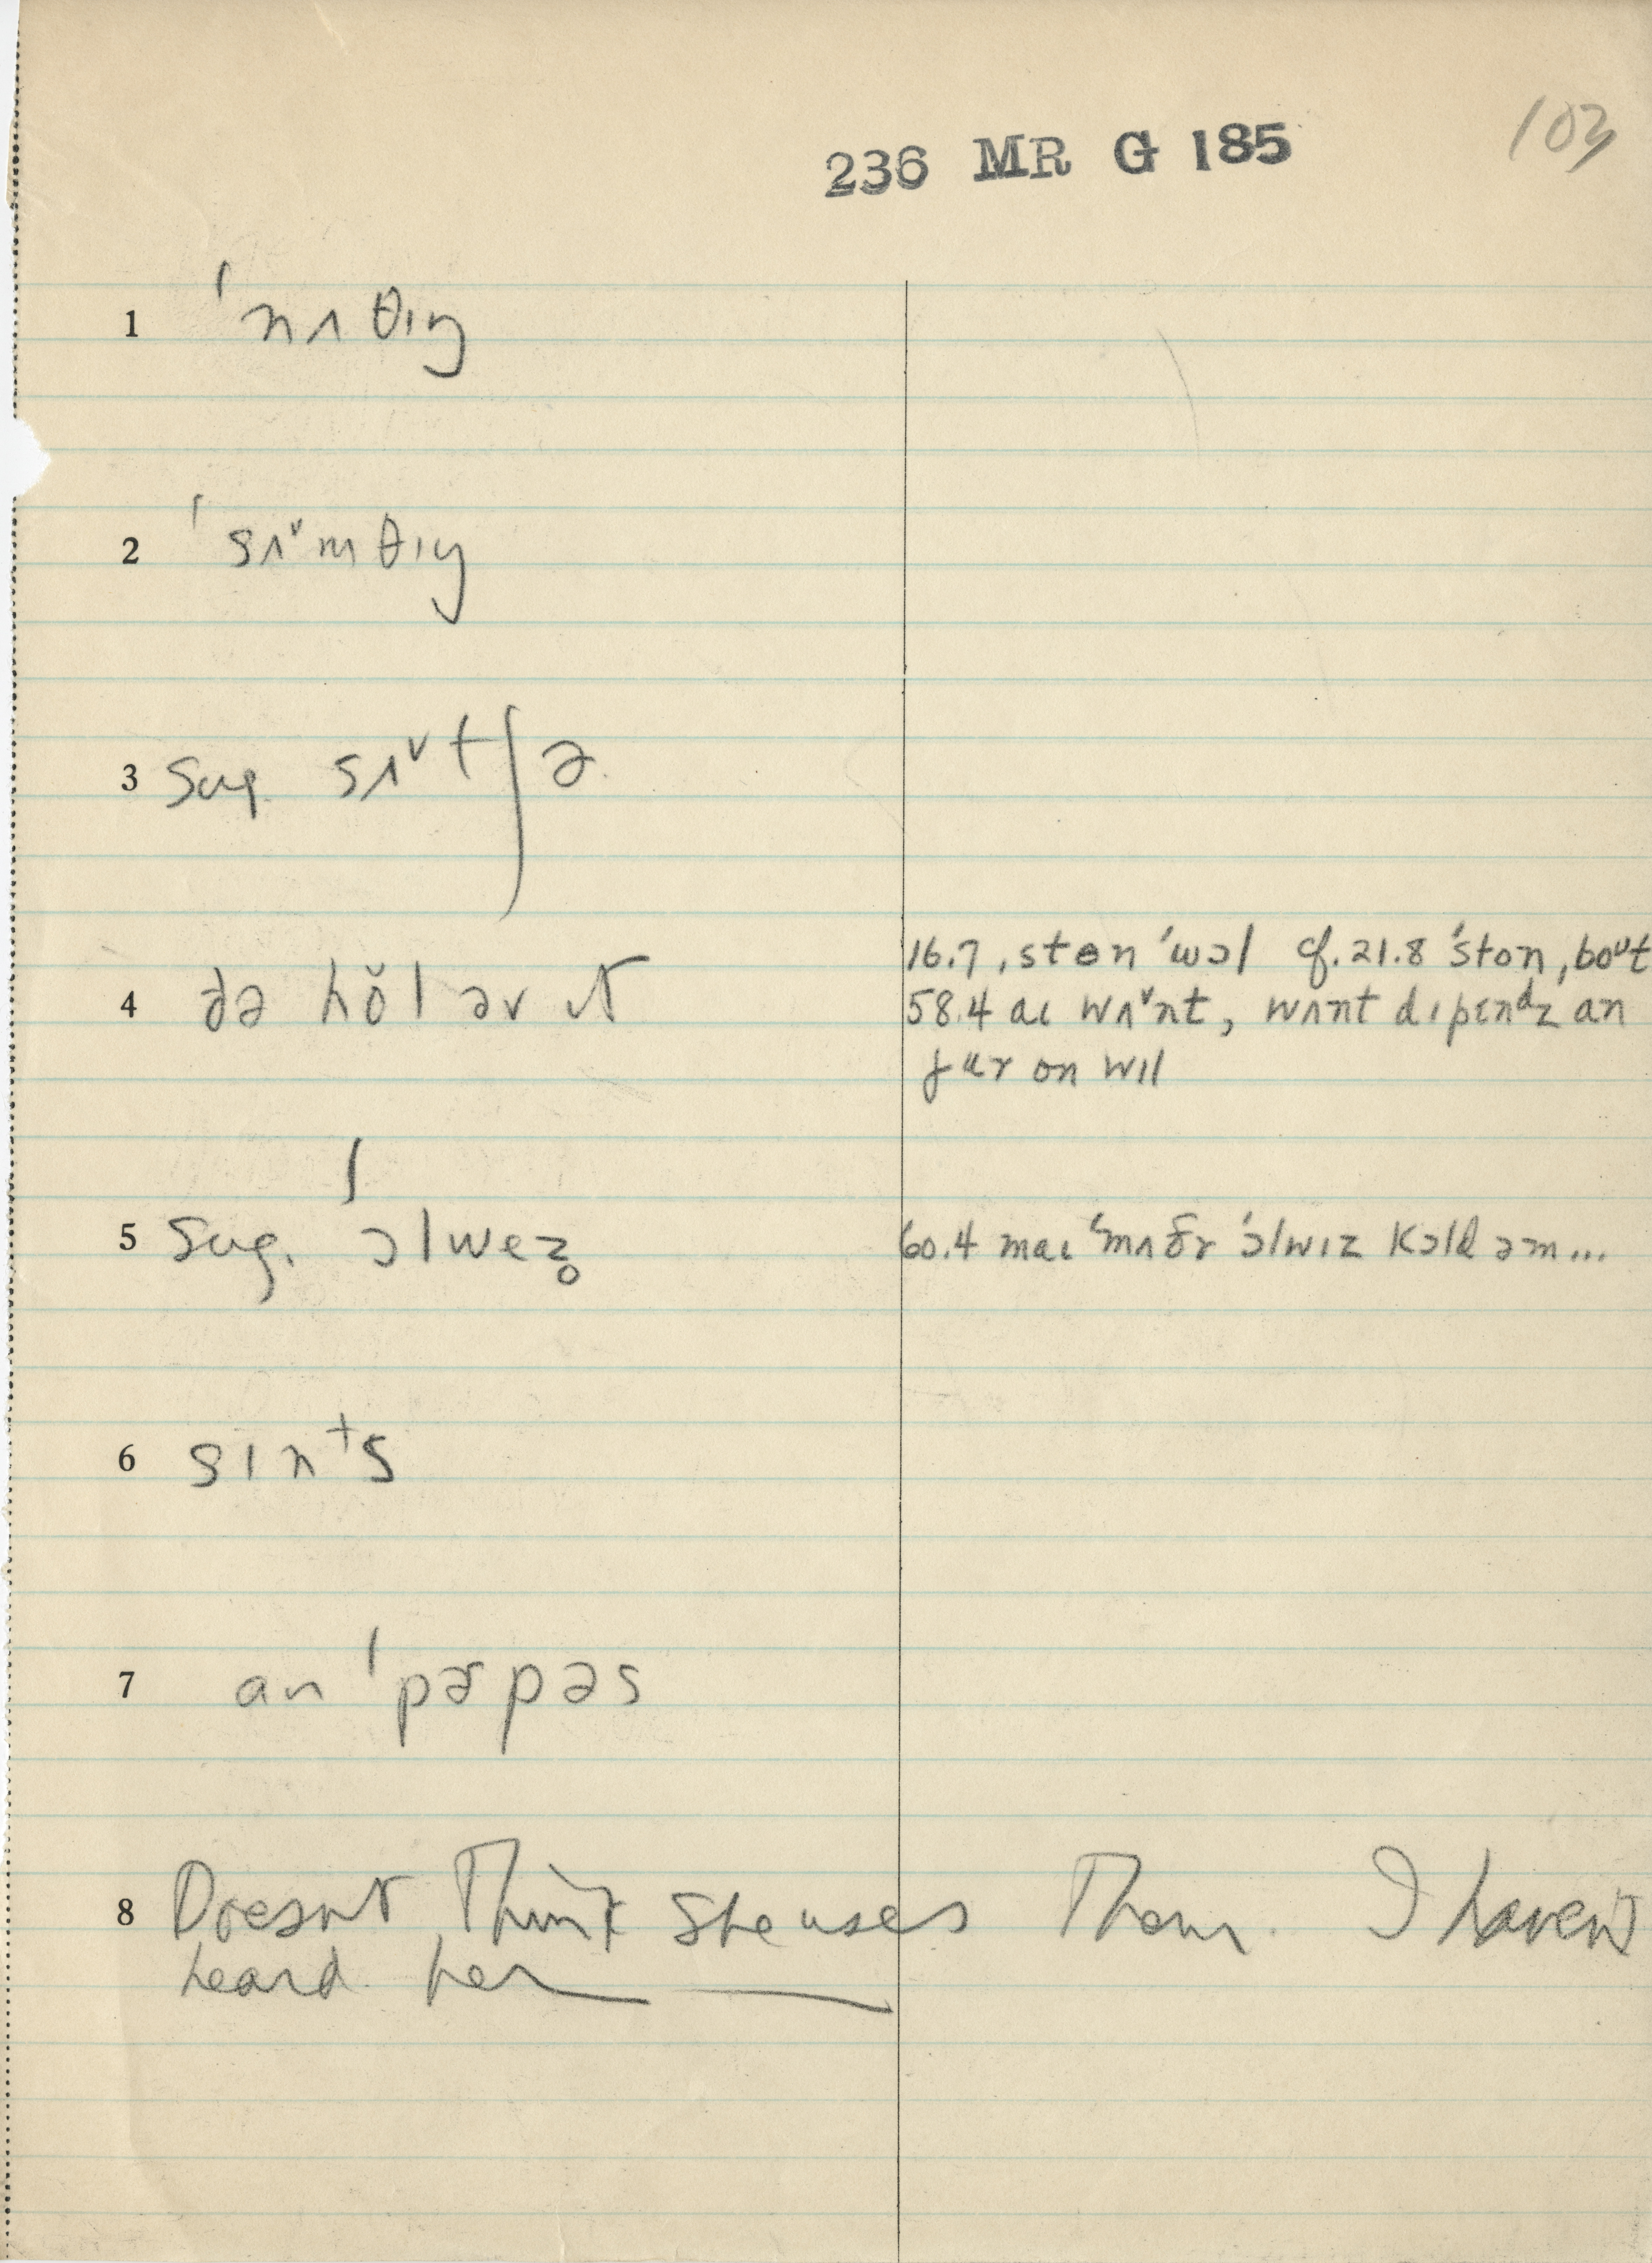 236 MR G 185
103
1 ˈnʌθɪŋ
2 ˈsʌˇmθɪŋ
3 Sug. sʌˇtʃə
4 ðə hŏl əv ɪt
16.7, stɵn ˈwɔl cf. 21.8 ˈston, boᶷt
58.4 aɪ wʌˇnt, wʌnt dɪpɛnᵈz an
jʊr on wɪl
5 Sug. ˈɔlwez̥
60.4 maɪ ˈmʌðɚ ˈɔlwɪz kɔld əm...
6 sɪnᵗs
7 an ˈpɚpəs
8 Doesnt Think she uses Them. I haven't
heard her